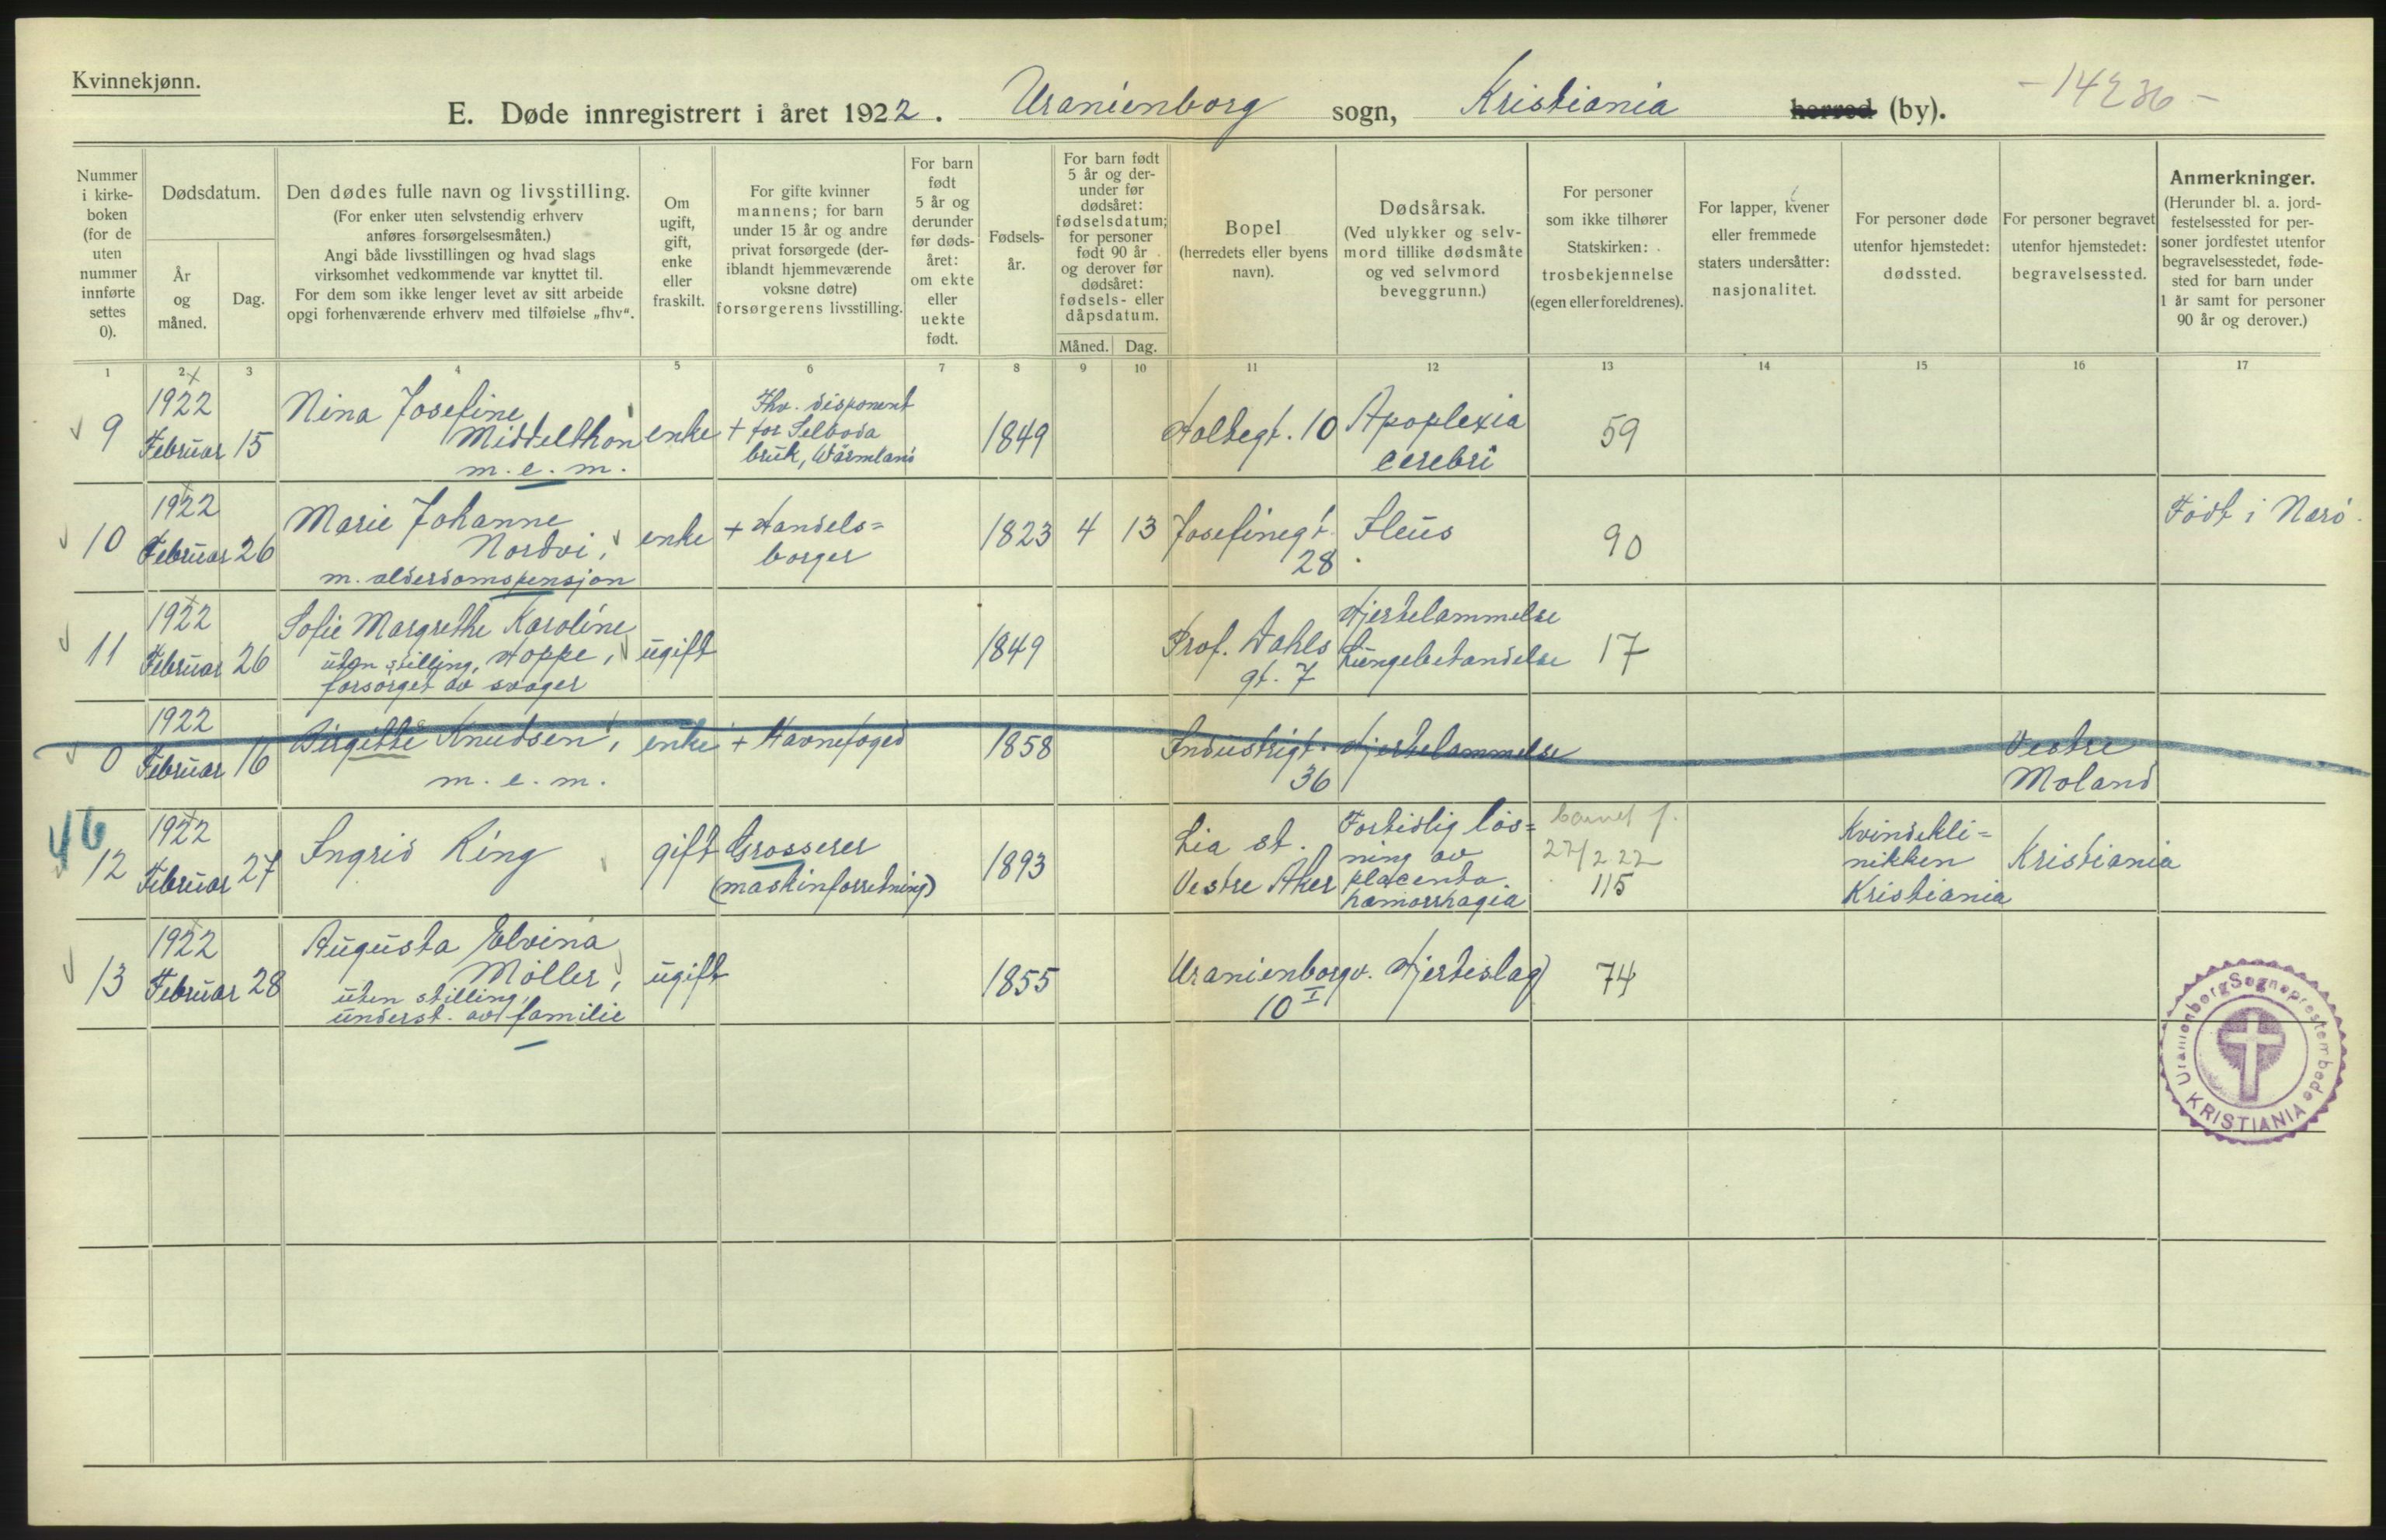 Kvinnekjønn.
E. Døde innregistrert i året 1922. Uranienborg sogn, Kristiania herred (by).
Nummer
i kirke-
boken
(for de
uten
nummer
innførte
settes
0).
Dødsdatum.
År
og
måned.
Dag.
Den dødes fulle navn og livsstilling.
(For enker uten selvstendig erhverv
anføres forsørgelsesmåten.)
Angi både livsstillingen og hvad slags
virksomhet vedkommende var knyttet til.
For dem som ikke lenger levet av sitt arbeide
opgi forhenværende erhverv med tilføielse „fhv“.
Om
ugift,
gift,
enke
eller
fraskilt.
For gifte kvinner
mannens; for barn
under 15 år og andre
privat forsørgede (der-
iblandt hjemmeværende
voksne døtre)
forsørgerens livsstilling.
For barn
født
5 år og
derunder
før døds-
året:
om ekte
eller
uekte
født.
Fødsels-
år.
For barn født
5 år og der-
under før
dødsåret:
fødselsdatum;
for personer
født 90 år
og derover før
dødsåret:
fødsels- eller
dåpsdatum.
Måned.
Dag.
Bopel
(herredets eller byens
navn).
Dødsårsak.
(Ved ulykker og selv-
mord tillike dødsmåte
og ved selvmord
beveggrunn.)
For personer
som ikke tilhører
Statskirken:
trosbekjennelse
(egen eller foreldrenes).
For lapper, kvener
eller fremmede
staters undersåtter:
nasjonalitet.
For personer døde
utenfor hjemstedet:
dødssted.
For personer begravet
utenfor hjemstedet:
begravelsessted.
Anmerkninger.
(Herunder bl. a. jord-
festelsessted for per-
soner jordfestet utenfor
begravelsesstedet, føde-
sted for barn under
1 år samt for personer
90 år og derover.)
1 2 3 4 5 6 7 8 9 10 11 12 13 14 15 16 17
9
1922
Februar 15
Nina Josefine
Middelthon
m. e. m.
enke
+ Fhv. disponent
for Selboda
bruk, Wärmland
1849
Holtegt. 10
Apoplexia
cerebri
59
10
1922
Februar 26
Marie Johanne
Nordvi,
m. alderdomspensjon
enke
+ Handels=
borger
1823 4 13
Josefinegt.
28
Ileus
90
Født i Nærø.
11
1922
Februar 26
Sofie Margrethe Karoline
uten stilling, Hoppe,
forsørget av svoger
ugift
1849
Prof. Dahls
gt. 7
Hjertelammelse
Lungebetændelse
17
0
1922
Februar 16
Birgitte Knudsen,
m. e. m.
enke
+ Havnefoged
1858
Industrigt.
36
Hjertelammelse
Vestre
Moland
46
12
1922
Februar 27
Ingrid Ring
gift
Grosserer
(maskinforretning)
1893
Lia st.
Vestre Aker
Fortidlig løs=
ning av
placenta
hæmorrhagia
barnet f.
27/2 22
115
Kvindekli=
nikken
Kristiania
Kristiania
13
1922
Februar 28
Augusta Elvina
Møller,
uten stilling,
underst. av familie
ugift
1855
Uranienborgv.
10 I
Hjerteslag
74
Uranienborg Sogneprestembede
KRISTIANIA